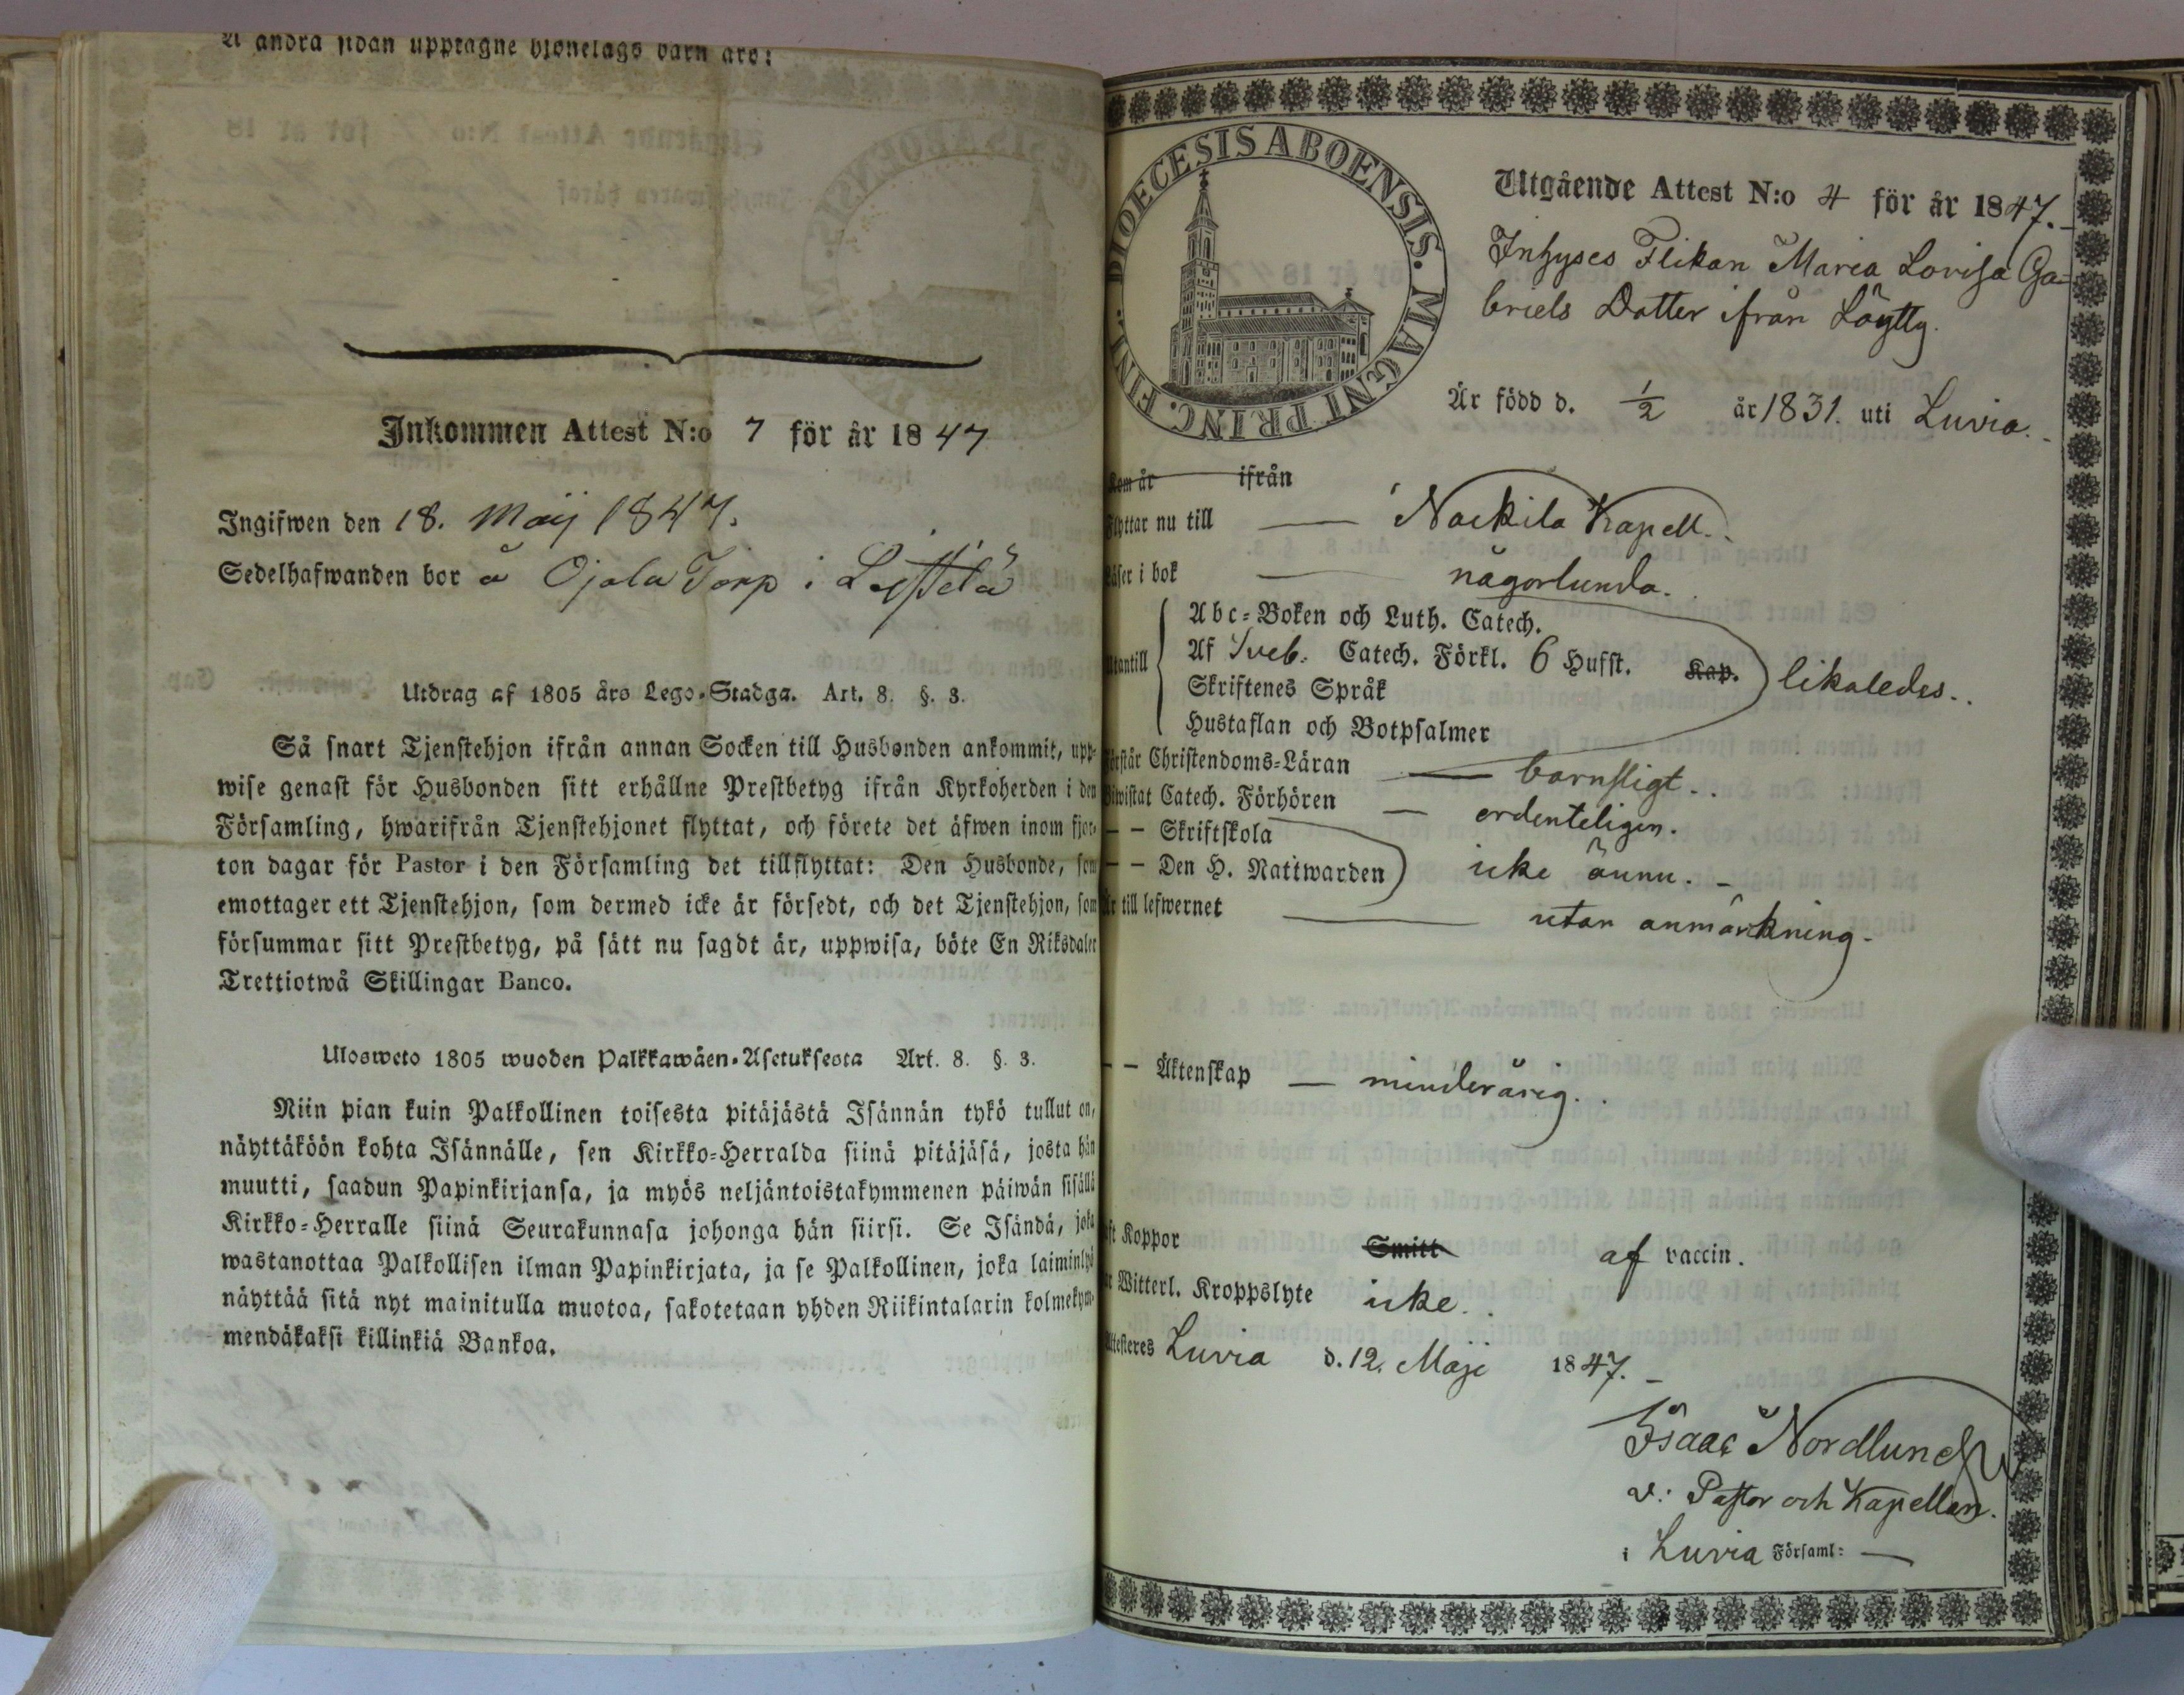 Å andra sidan upptagne hjonelags barn äro:
Inkommen Attest N:o 7 för år 1847
Ingifwen den 18. Maij 1847.
Sedelhafwanden bor å Ojala Torp i
Utdrag af 1805 års Lego-Stadga. Art. 8. §. 3.
Så snart Tjenstehjon ifrån annan Socken till Husbonden ankommit, upp-
wise genast för Husbonden sitt erhållne Prestbetyg ifrån Kyrkoherden i den
Församling, hwarifrån Tjenstehjonet flyttat, och förete det äfwen inom fjor-
ton dagar för Pastor i den Församling det tillflyttat: Den Husbonde, som
emottager ett Tjenstehjon, som dermed icke är försedt, och det Tjenstehjon, som
försummar sitt Prestbetyg, på sätt nu sagdt är, uppwisa, böte En Riksdaler
Trettiotwå Skillingar Banco.
Ulosweto 1805 wuoden Palkkawäen-Asetuksesta Art. 8. §. 3.
Niin pian kuin Palkollinen toisesta pitäjästä Isännän tykö tullut on,
näyttäköön kohta Isännälle, sen Kirkko-Herralda siinä pitäjäsä, josta hän
muutti, saadun Papinkirjansa, ja myös neljäntoistakymmenen päiwän sisällä
Kirkko-Herralle siinä Seurakunnasa johonga hän siirsi. Se Isändä, joka
wastanottaa Palkollisen ilman Papinkirjata, ja se Palkollinen, joka laiminlyö
näyttää sitä nyt mainitulla muotoa, sakotetaan yhden Riikintalarin kolmekym-
mendäkaksi killinkiä Bankoa.
DIOECESIS ABOENSIS. MAGNI PRINC. FINL.
Utgående Attest N:o 4 för år 1847.
Inhyses Flikan Maria Lovisa Ga-
briels Dotter ifrån Löytty.
Är född d. 1/2 år 1831. uti Luvia.
Kom år ifrån
Flyttar nu till — Nackila Kapell.
Läser i bok — någorlunda.
Abc-Boken och Luth. Catech.
Utantill Af Sveb. Catech. Förkl. 6 Hufst. Kap. likaledes.
Skriftenes Språk
Hustaflan och Botpsalmer
Förstår Christendoms-Läran — barnsligt.
Biwistat Catech. Förhören — ordenteligen.
— — Skriftskola
— — Den H. Nattwarden icke ännu.
Är till lefwernet — utan anmärkning.
— — Äktenskap — minderårig.
Haft Koppor Smitt af vaccin.
Har Witterl. Kroppslyte icke.
Attesteres Luvia d. 12. Maji 1847.
Isaac Nordlund
v: Pastor och Kapellan.
i Luvia Församl: —